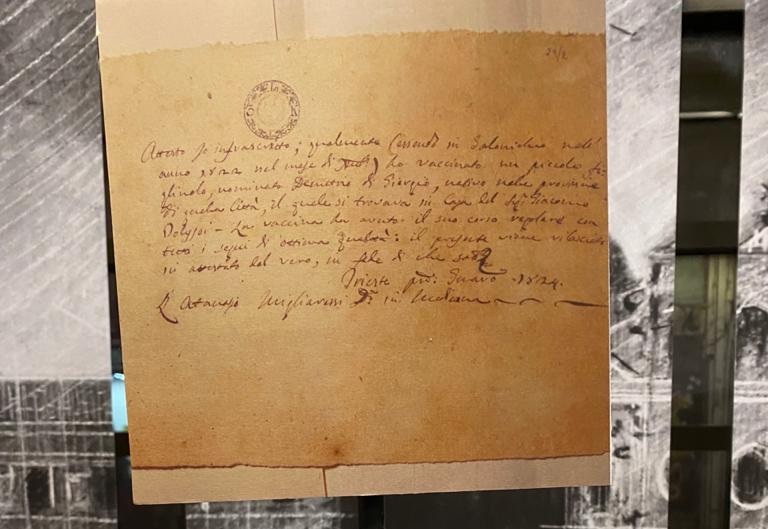 24/2
Attesto Io infrascritto; qualmente essendo in Salonichio nell'
anno 1822 nel mese di ho vaccinato un piccolo
gliuolo, nominato Demetrio di Giorgio, nativo nelle provincie
di quella Città, il quale si trovava in Casa del Sigr Giacomo
La vaccina ha avuto il suo corso regolare con
tutti i segni di ottima qualità: il presente viene rilasciato
in attestato del vero, in fede di che
Trieste 1824.
Atanasio Migliaressi Dr in Medicina